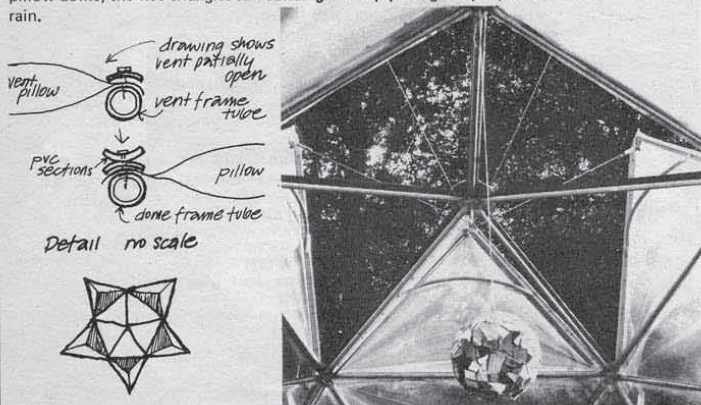 rain.
drawing shows
vent patially
open
vent
pillow
vent frame
tube
pvc
sections
pillow
dome frame tube
Detail no scale